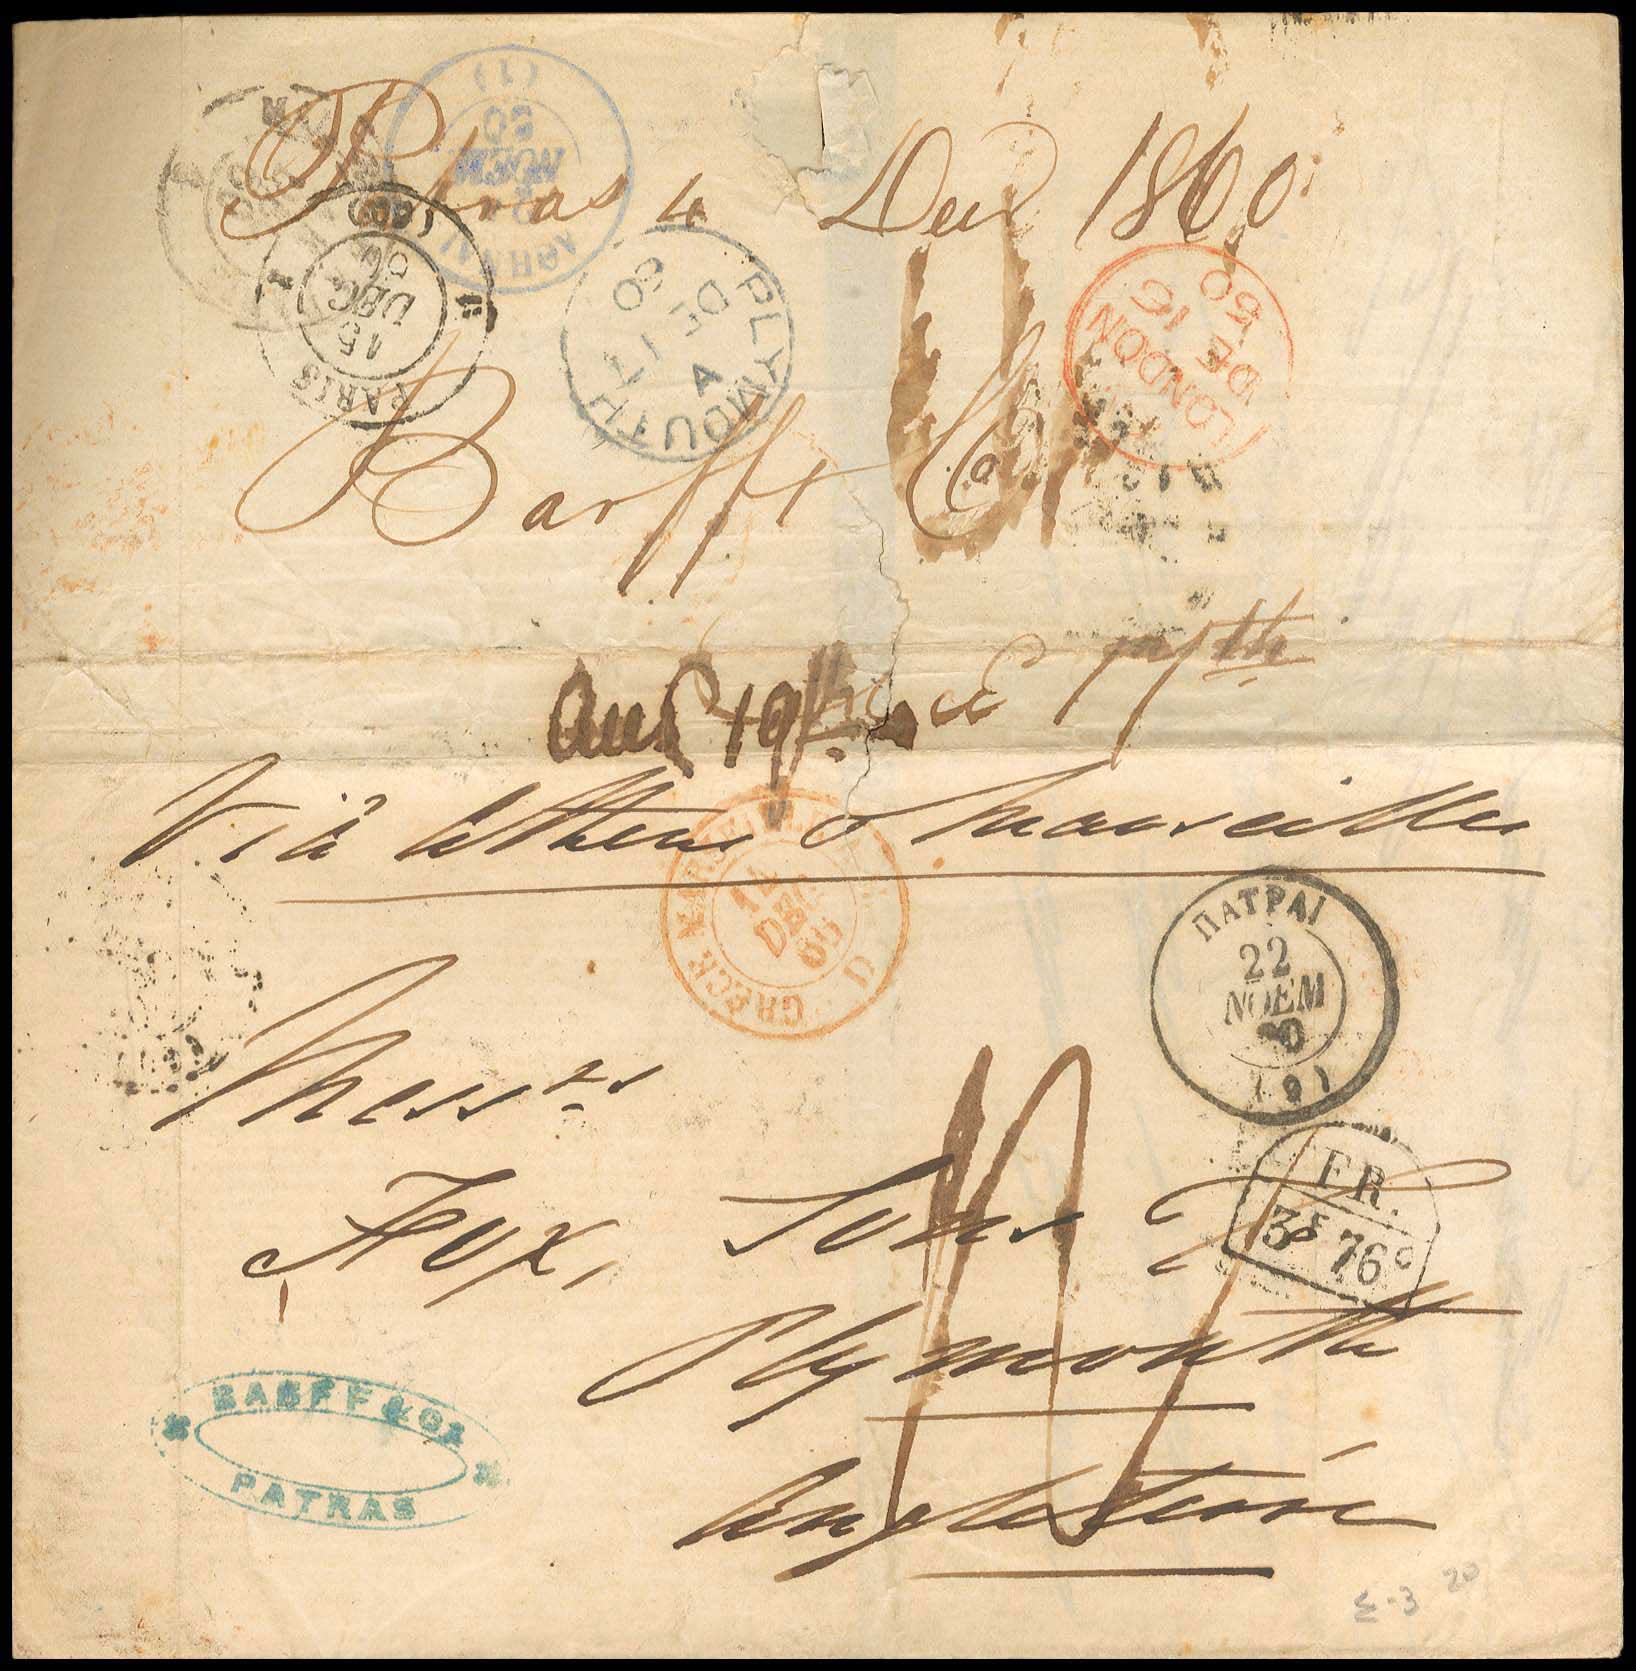 Patras 4 Decr 1860
(1)
20
ΝΟΕΜ
ΑΘΗΝΑΙ
(60)
15
DEC
PARIS
PLYMOUTH
A
DE 17
60
LONDON
DE 15
Barff & Co
recd 17th
ansd 19th
Viâ Athens & Marseilles
GRECE MARSEILLE
14
DEC
60
D
ΠΑΤΡΑΙ
22
ΝΟΕΜ
60
(9)
Messrs
Fox, Sons &
FR.
3f 76c
Plymouth
Angleterre
BARFF & Co
PATRAS
Σ-3 20